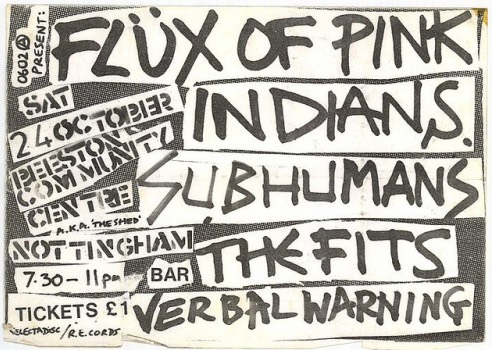 0602 Ⓐ
PRESENT:
FLÜX OF PINK
INDIANS.
SUBHUMANS
THE FITS
VERBAL WARNING
SAT
24 OCTOBER
BEESTON
COMMUNITY
CENTRE
A.K.A. 'THE SHED'
NOTTINGHAM
7.30 - 11pm
BAR
TICKETS £1
SELECTADISC / R.E.CORDS